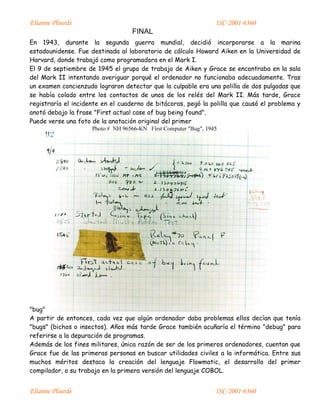 Elianne Plourde ISC-2001-6360
FINAL
En 1943, durante la segunda guerra mundial, decidió incorporarse a la marina
estadounidense. Fue destinada al laboratorio de cálculo Howard Aiken en la Universidad de
Harvard, donde trabajó como programadora en el Mark I.
El 9 de septiembre de 1945 el grupo de trabajo de Aiken y Grace se encontraba en la sala
del Mark II intentando averiguar porqué el ordenador no funcionaba adecuadamente. Tras
un examen concienzudo lograron detectar que la culpable era una polilla de dos pulgadas que
se había colado entre los contactos de unos de los relés del Mark II. Más tarde, Grace
registraría el incidente en el cuaderno de bitácoras, pegó la polilla que causó el problema y
anotó debajo la frase "First actual case of bug being found".
Puede verse una foto de la anotación original del primer
Photo # NH 96566-KN First Computer "Bug", 1945
9/2
started
1.2700
stopped
Relays
changed
Started Cosine Tape (Sine check)
1545
Relay #70 Panel F
(moth) in relay.
First actual case of bug being found.
closed down.
"bug"
A partir de entonces, cada vez que algún ordenador daba problemas ellos decían que tenía
"bugs" (bichos o insectos). Años más tarde Grace también acuñaría el término "debug" para
referirse a la depuración de programas.
Además de los fines militares, única razón de ser de los primeros ordenadores, cuentan que
Grace fue de las primeras personas en buscar utilidades civiles a la informática. Entre sus
muchos méritos destaca la creación del lenguaje Flowmatic, el desarrollo del primer
compilador, o su trabajo en la primera versión del lenguaje COBOL.
Elianne Plourde ISC-2001-6360